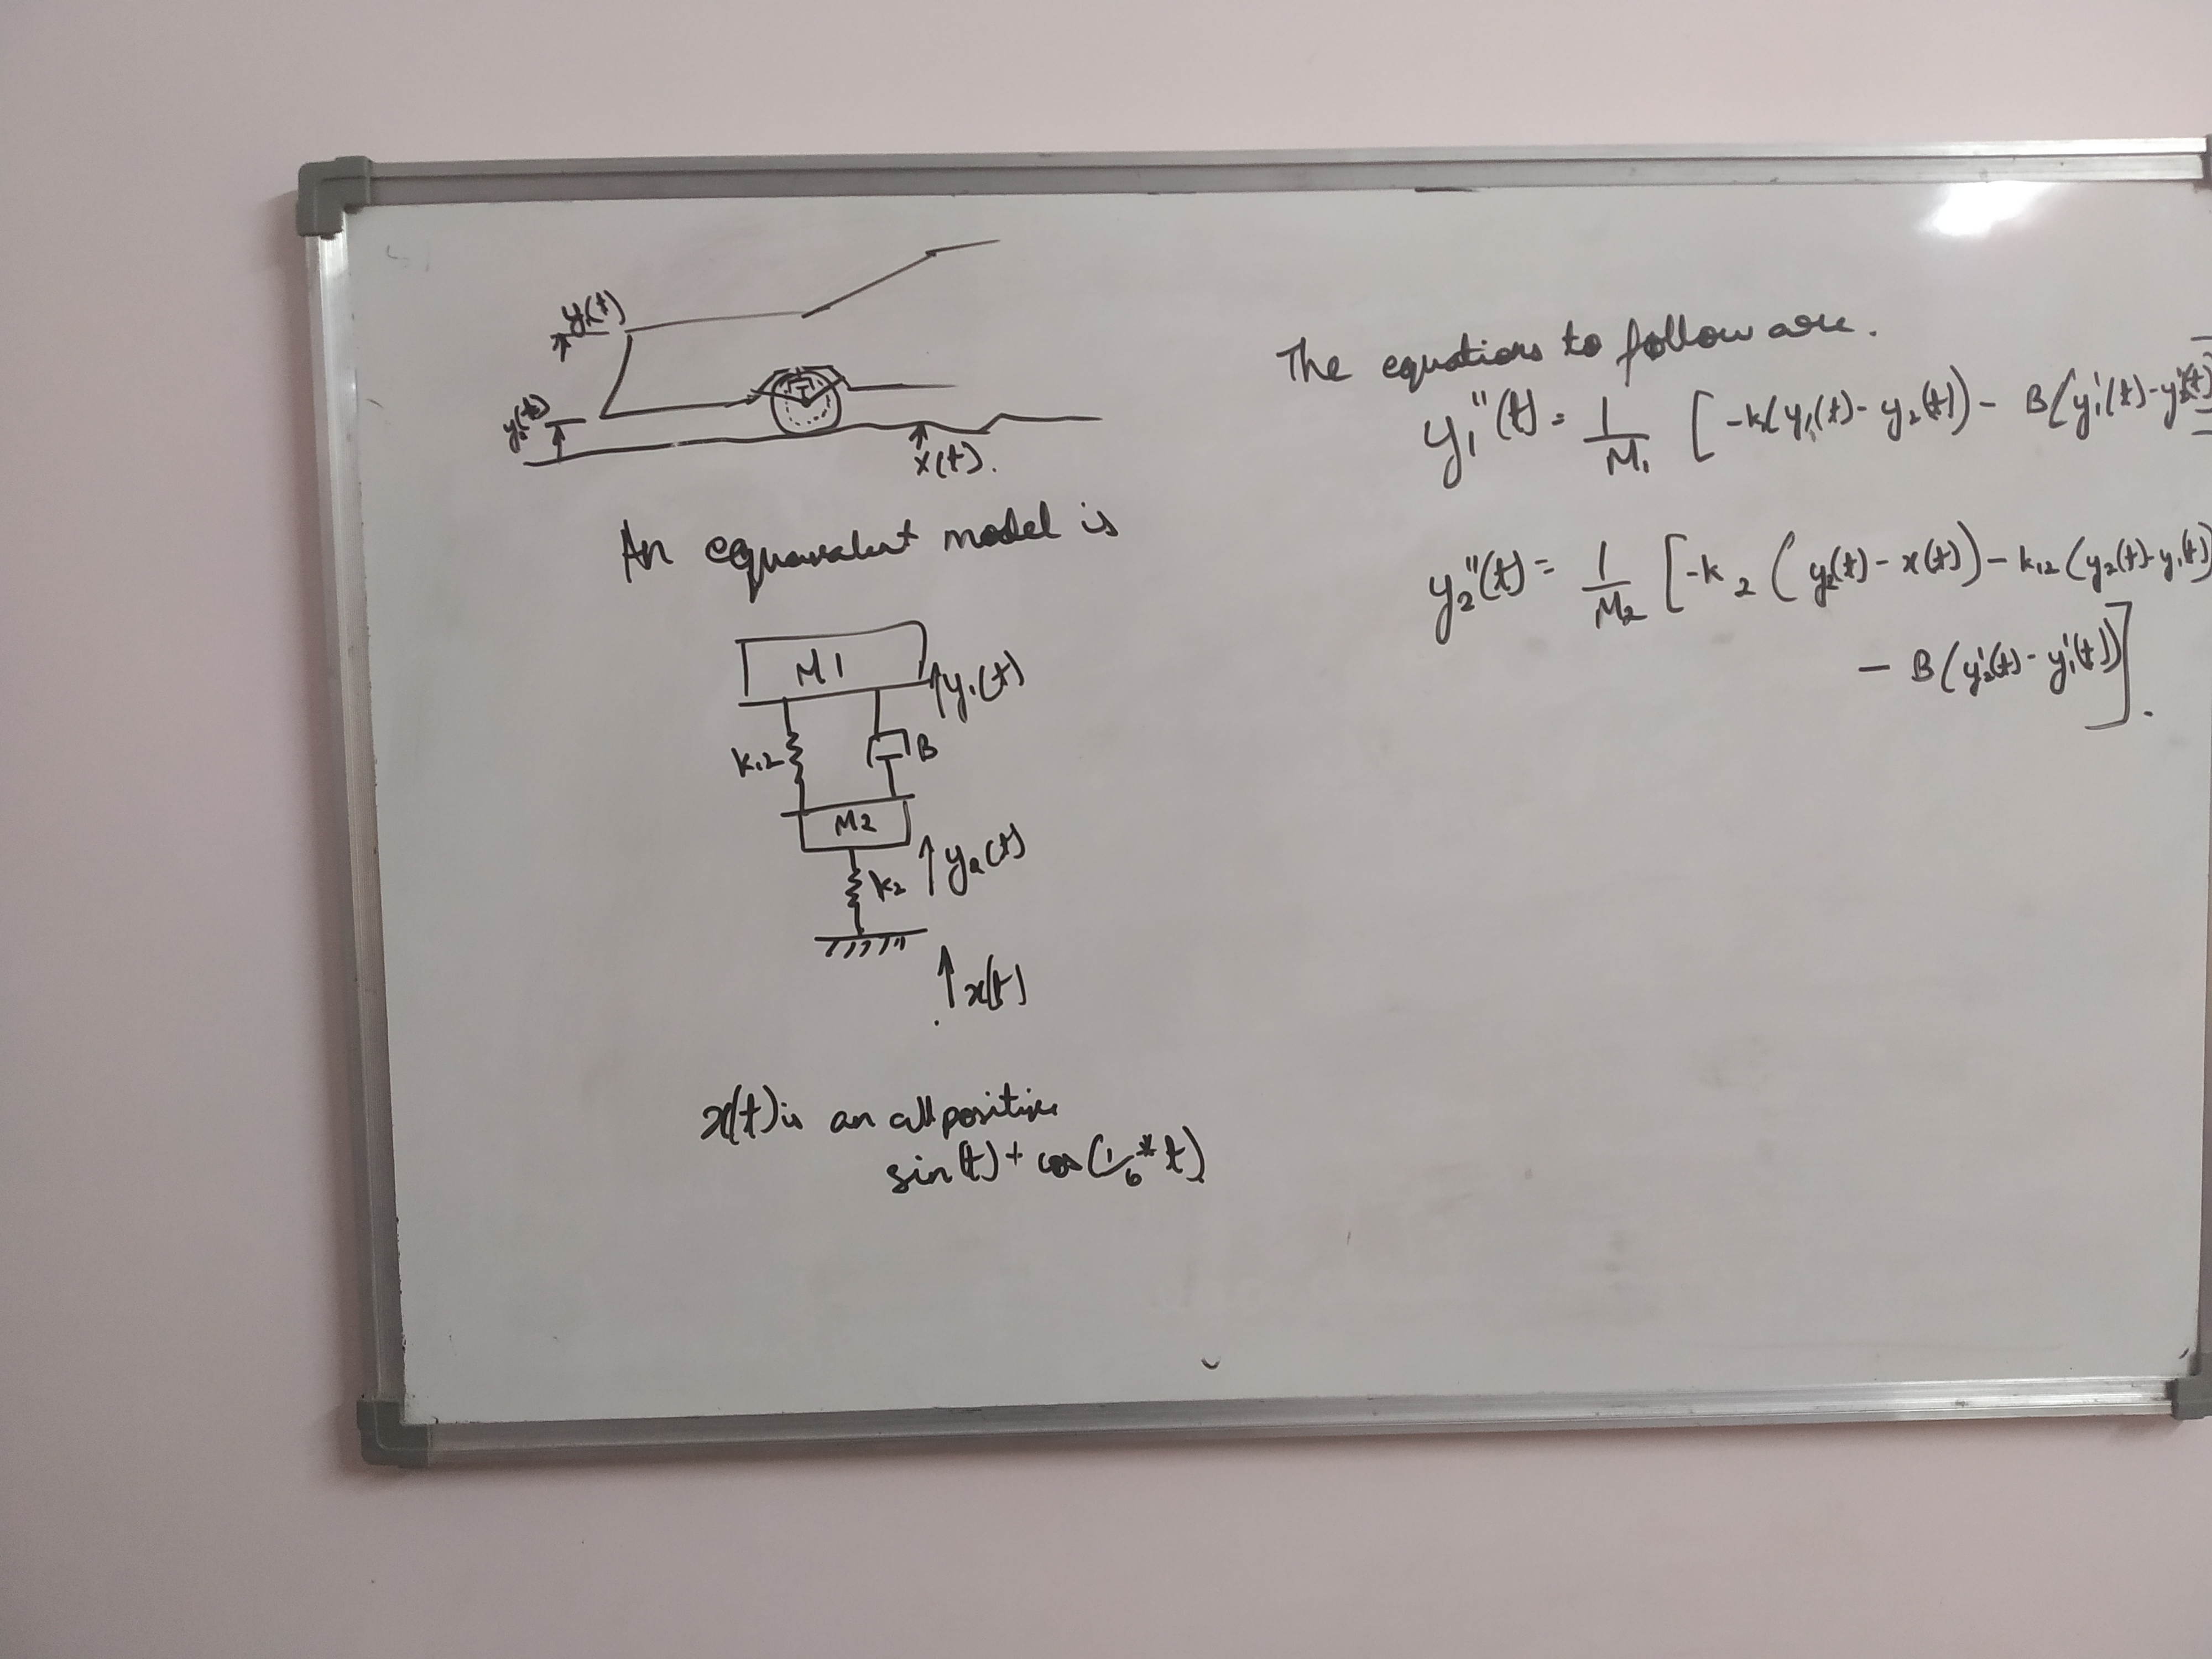 y₁(t)
y₂(t)
x(t).
An equavalent model is
M1
y₁(t)
K₁₂
B
M2
y₂(t)
k₂
x(t)
x(t) is an all positive
sin(t) + cos(1/6 * t)
The equations to follow are.
y₁''(t) = 1/M₁ [-k(y₁(t) - y₂(t)) - B(y₁'(t) - y₂'(t))]
y₂''(t) = 1/M₂ [-k₂ (y₂(t) - x(t)) - k₁₂ (y₂(t) - y₁(t))
- B(y₂'(t) - y₁'(t))].